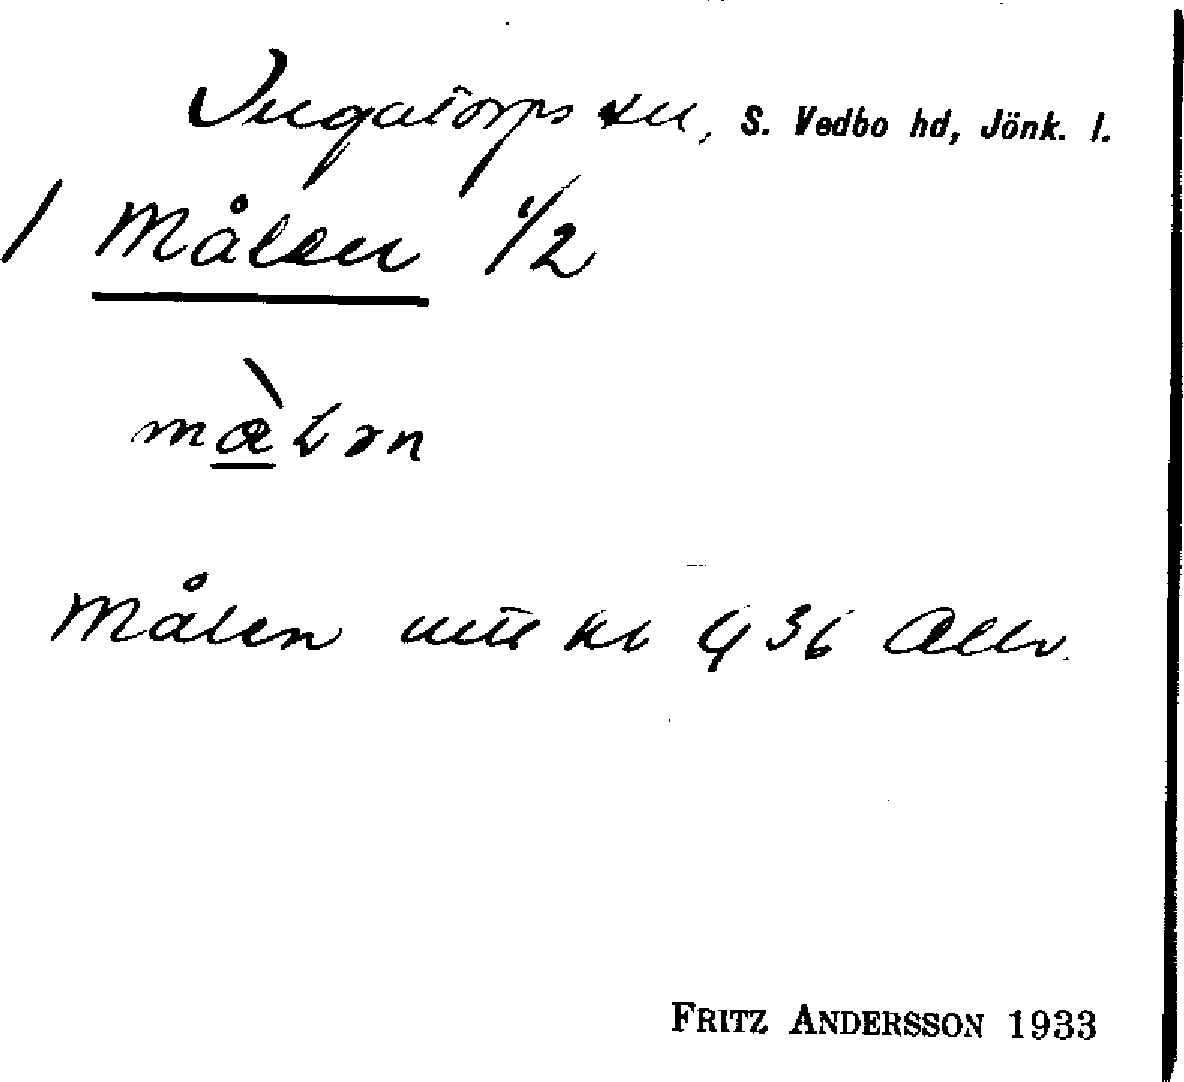 Ingatorps sn, S. Vedbo hd, Jönk. l.
/ Målen 1/2
màlən
Målen
FRITZ ANDERSSON 1933